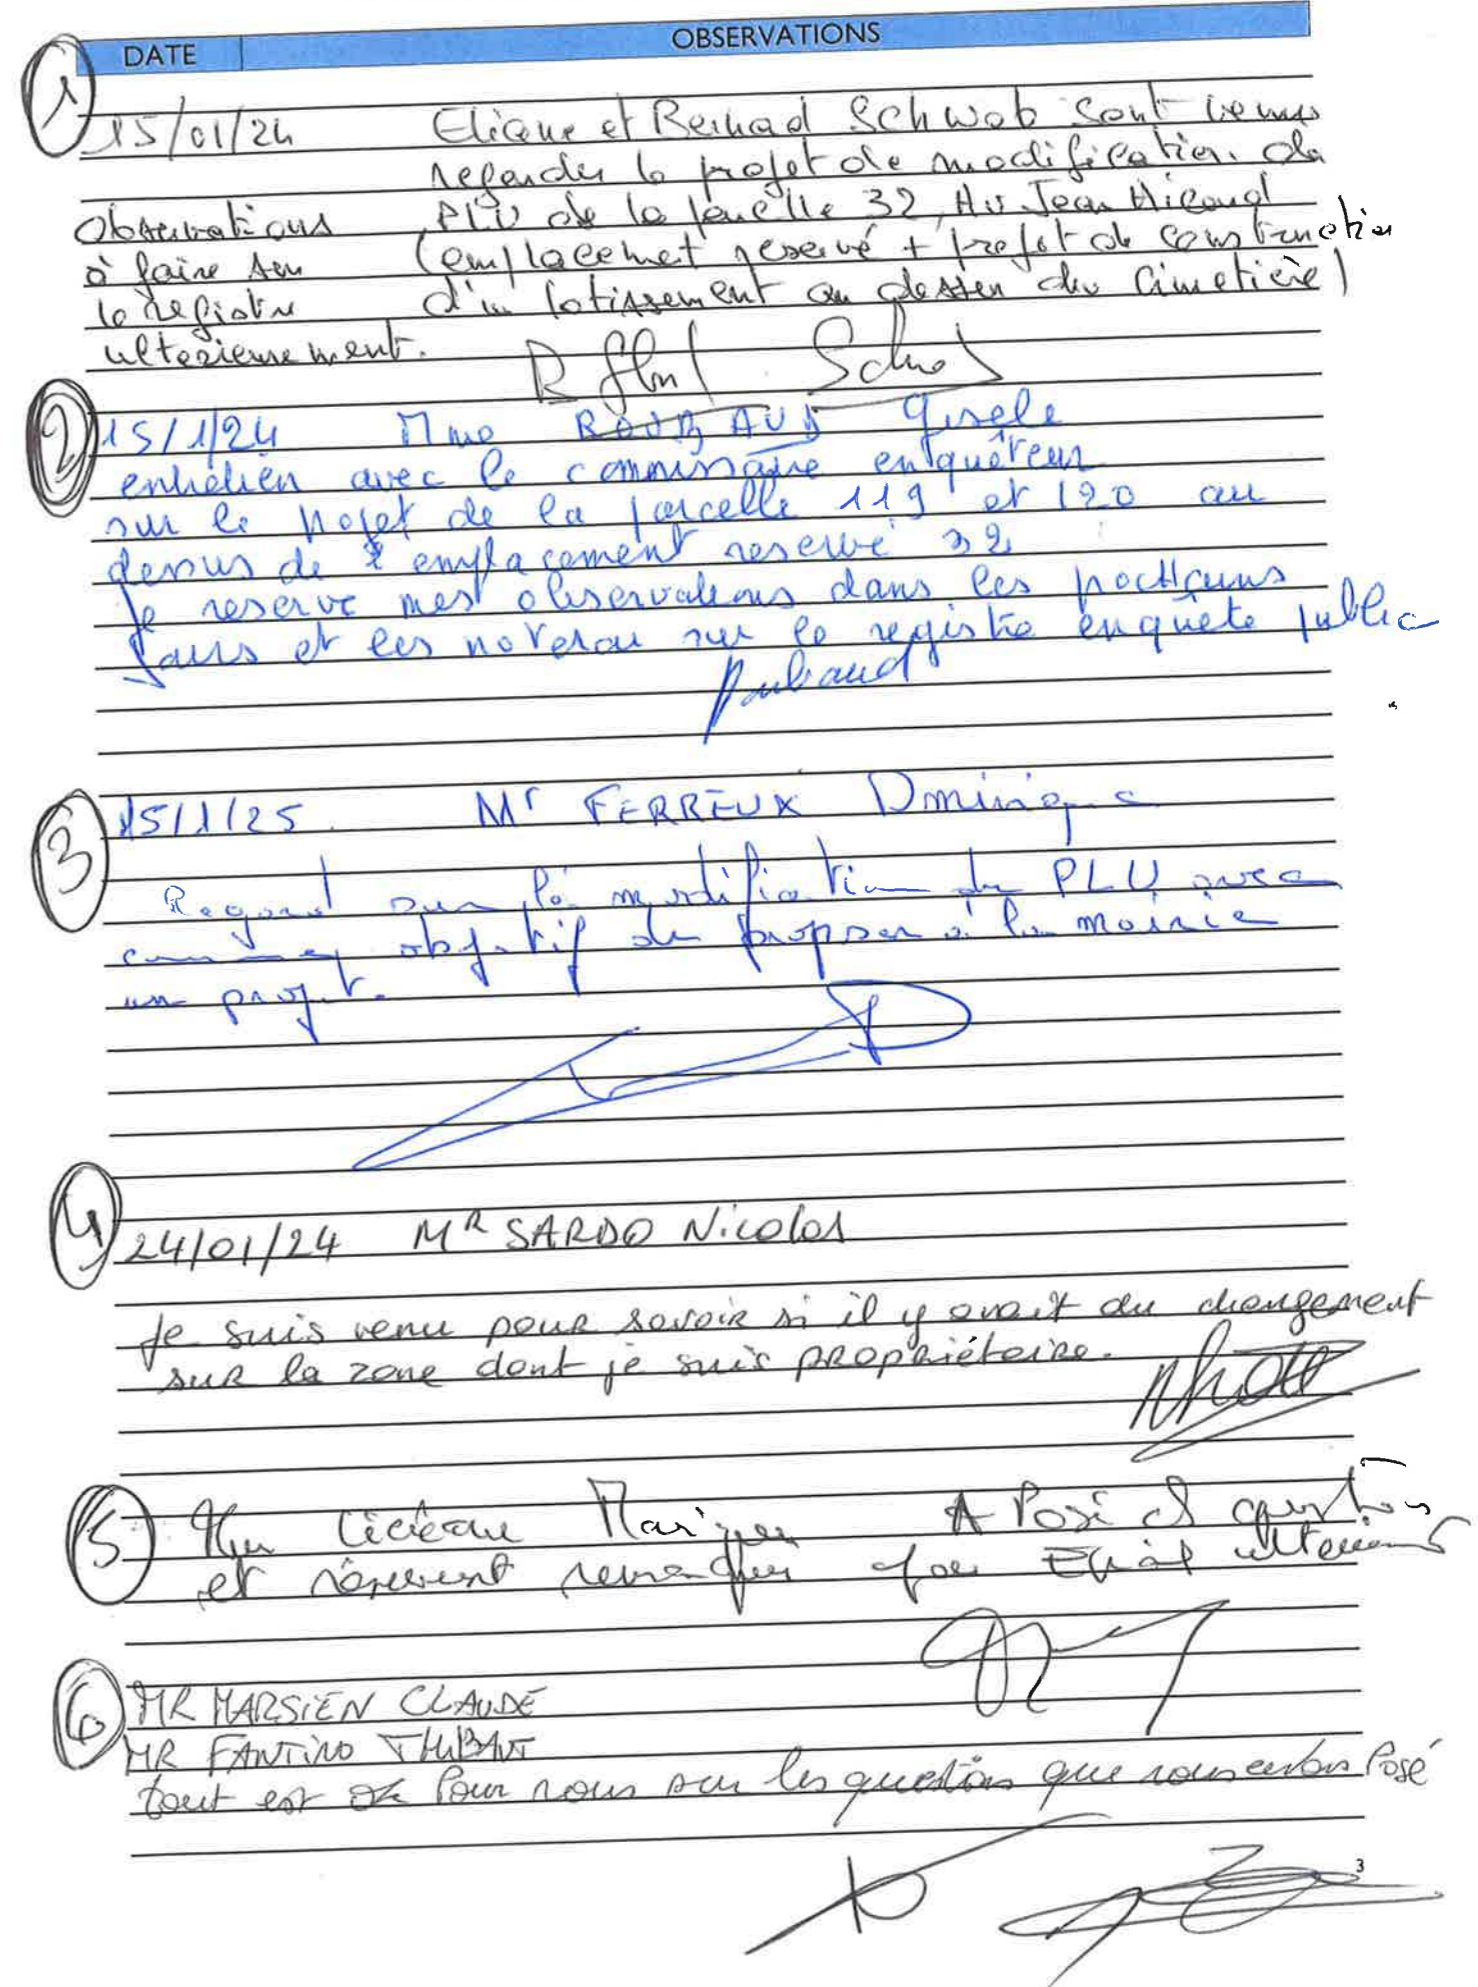 DATE OBSERVATIONS
1
15/01/24 Eliane et Bernad Schwob sont venus
regarder le projet de modification du
Observations PLU de la parcelle 32, Av Jean Micaud
à faire sur (emplacement reservé + projet de construction
le registre d'un lotissement au dessus du Cimetière)
ulterieurement.
2
15/1/24 Mme ROUBAUD Gisele
entretien avec le commissaire enquêteur
sur le projet de la parcelle 119 et 120 au
dessus de l'emplacement reservé 32
Je reserve mes observations dans les prochains
jours et les noterai sur le registre enquête public
3
15/1/25. Mr FERREUX Dominique
Regard sur la modification du PLU avec
comme objectif de proposer à la mairie
un projet.
4
24/01/24 MR SARDO Nicolas
Je suis venu pour savoir si il y avait du changement
sur la zone dont je suis propriétaire.
5
A Posé questions
et remarques par Email
6
MR MARSIEN CLAUDE
MR FANTINO THIBAUT
tout est ok Pour nous sur les questions que nous avons Posé
3